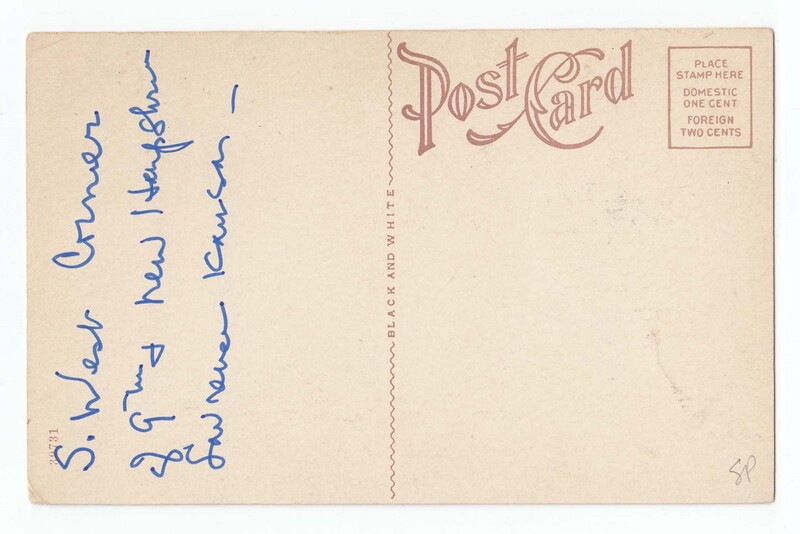 S. West Corner
of 9th + New Hampshire
Lawrence Kansas —
30731
BLACK AND WHITE
Post Card
PLACE
STAMP HERE
DOMESTIC
ONE CENT
FOREIGN
TWO CENTS
SP